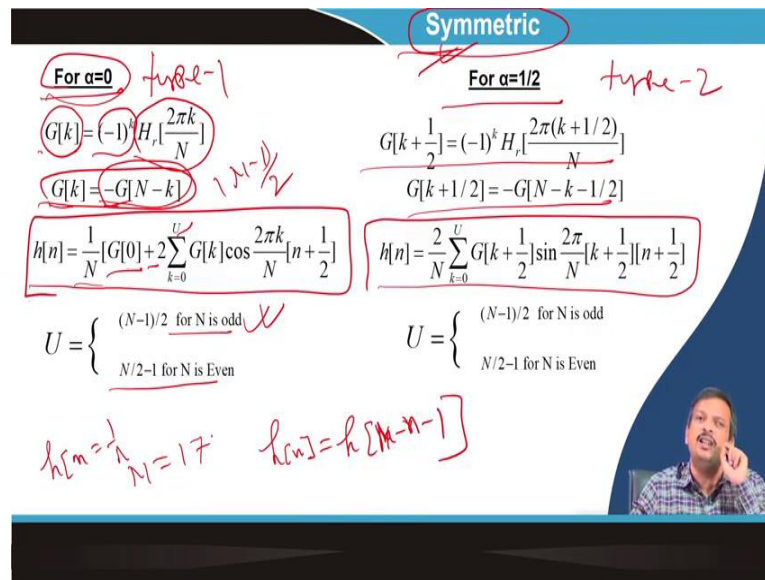 Symmetric
For α=0 type-1
G[k]=(-1)^k H_r[2πk/N]
G[k]=-G[N-k] (N-1)/2
h[n]=1/N[G[0]+2∑_{k=0}^{U}G[k]cos 2πk/N[n+1/2]
U={ (N-1)/2 for N is odd
N/2-1 for N is Even
h[n=1/n
N=17
For α=1/2 type-2
G[k+1/2]=(-1)^k H_r[2π(k+1/2)/N]
G[k+1/2]=-G[N-k-1/2]
h[n]=2/N∑_{k=0}^{U}G[k+1/2]sin 2π/N[k+1/2][n+1/2]
U={ (N-1)/2 for N is odd
N/2-1 for N is Even
h[n]=h[M-n-1]